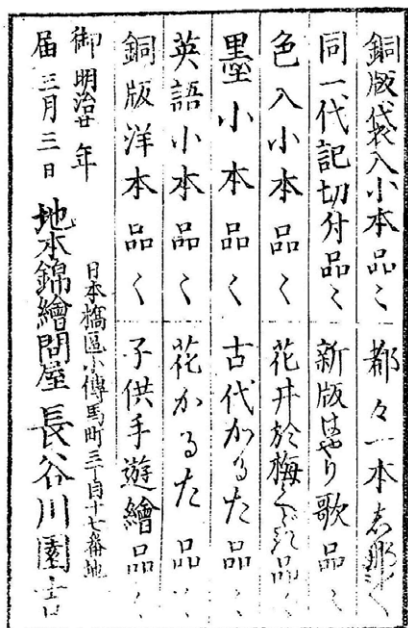 銅版袋入小本品〻 都々一本志那〳〵
同一代記切付品〻 新版はやり歌品〳〵
色入小本品〳〵 花井於梅くどき品〳〵
墨小本品〳〵 古代かるた品〳〵
英語小本品〳〵 花かるた品〳〵
銅版洋本品〳〵 子供手遊繪品〳〵
御届 明治廿年三月三日
日本橋區小傳馬町三丁目十七番地
地本錦繪問屋 長谷川園吉